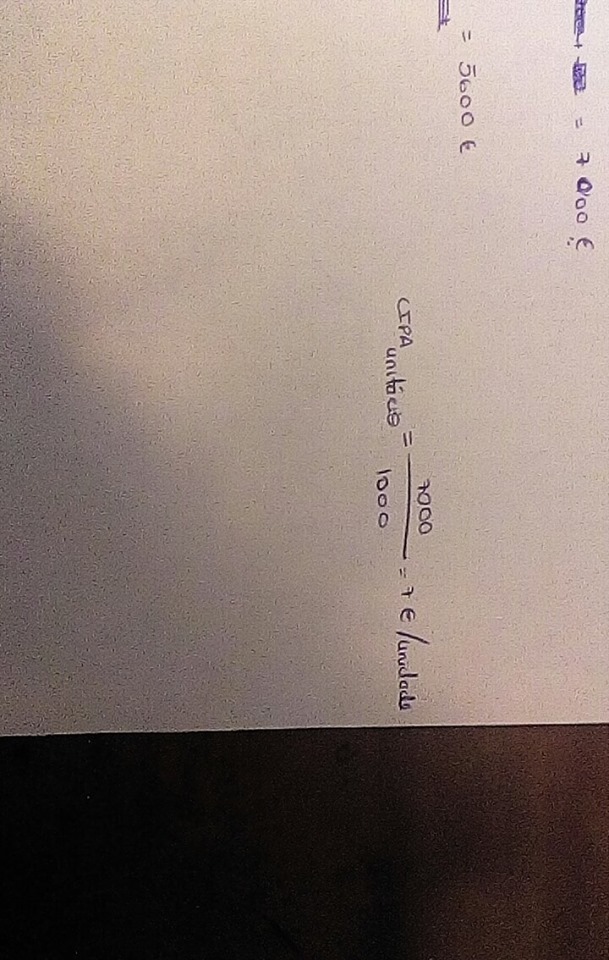 = 7000 €
= 5600 €
CIPA unitário = 7000 / 1000 = 7 € /unidade